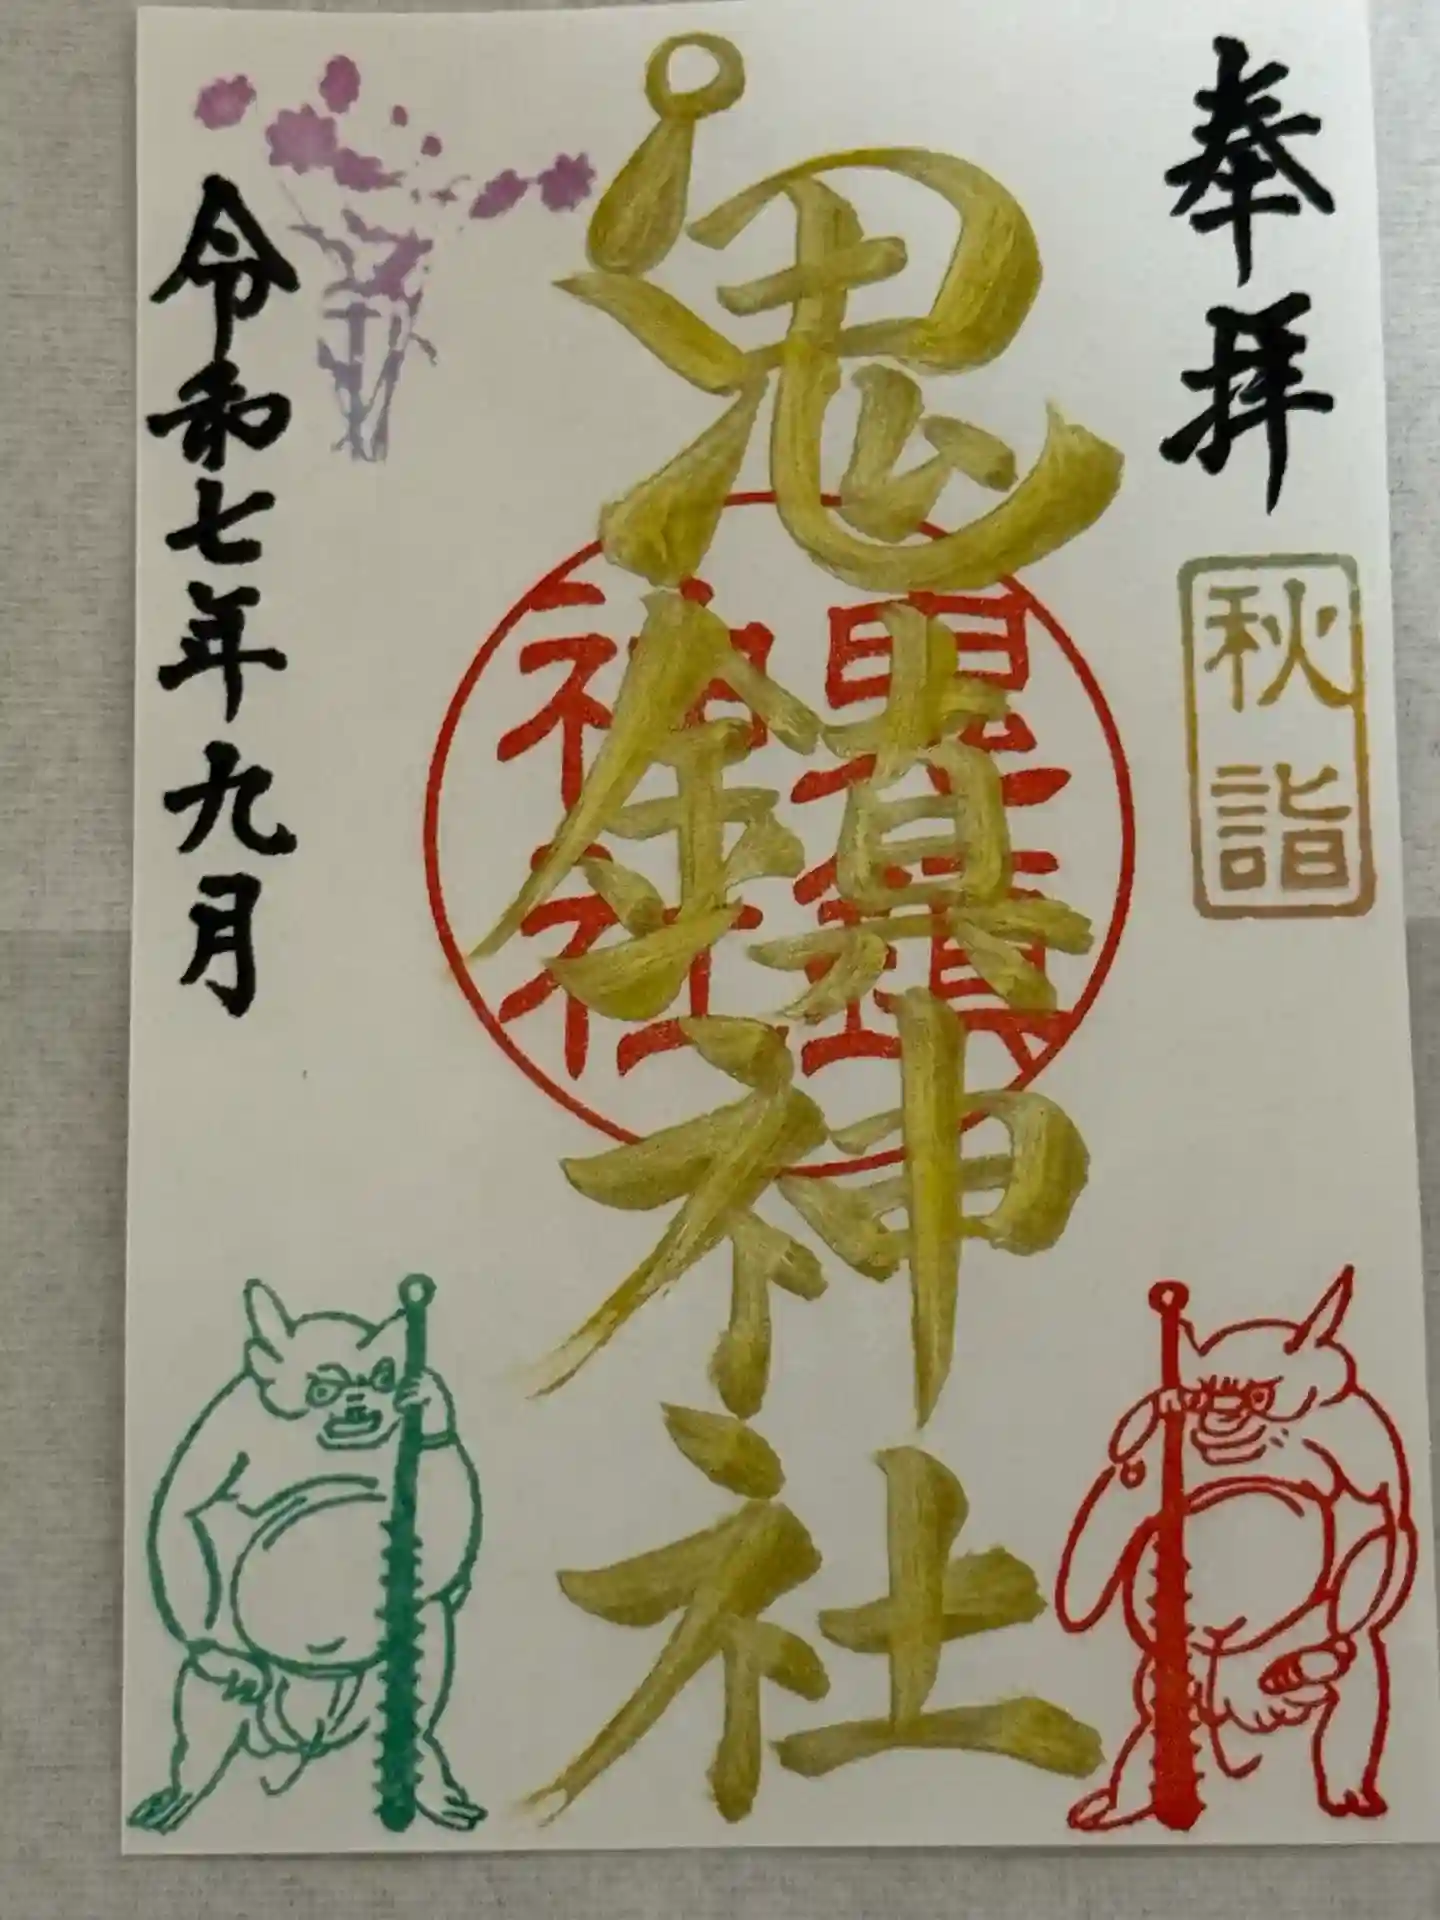 奉拝
秋詣
鬼鎮神社
鬼鎮
神社
令和七年九月